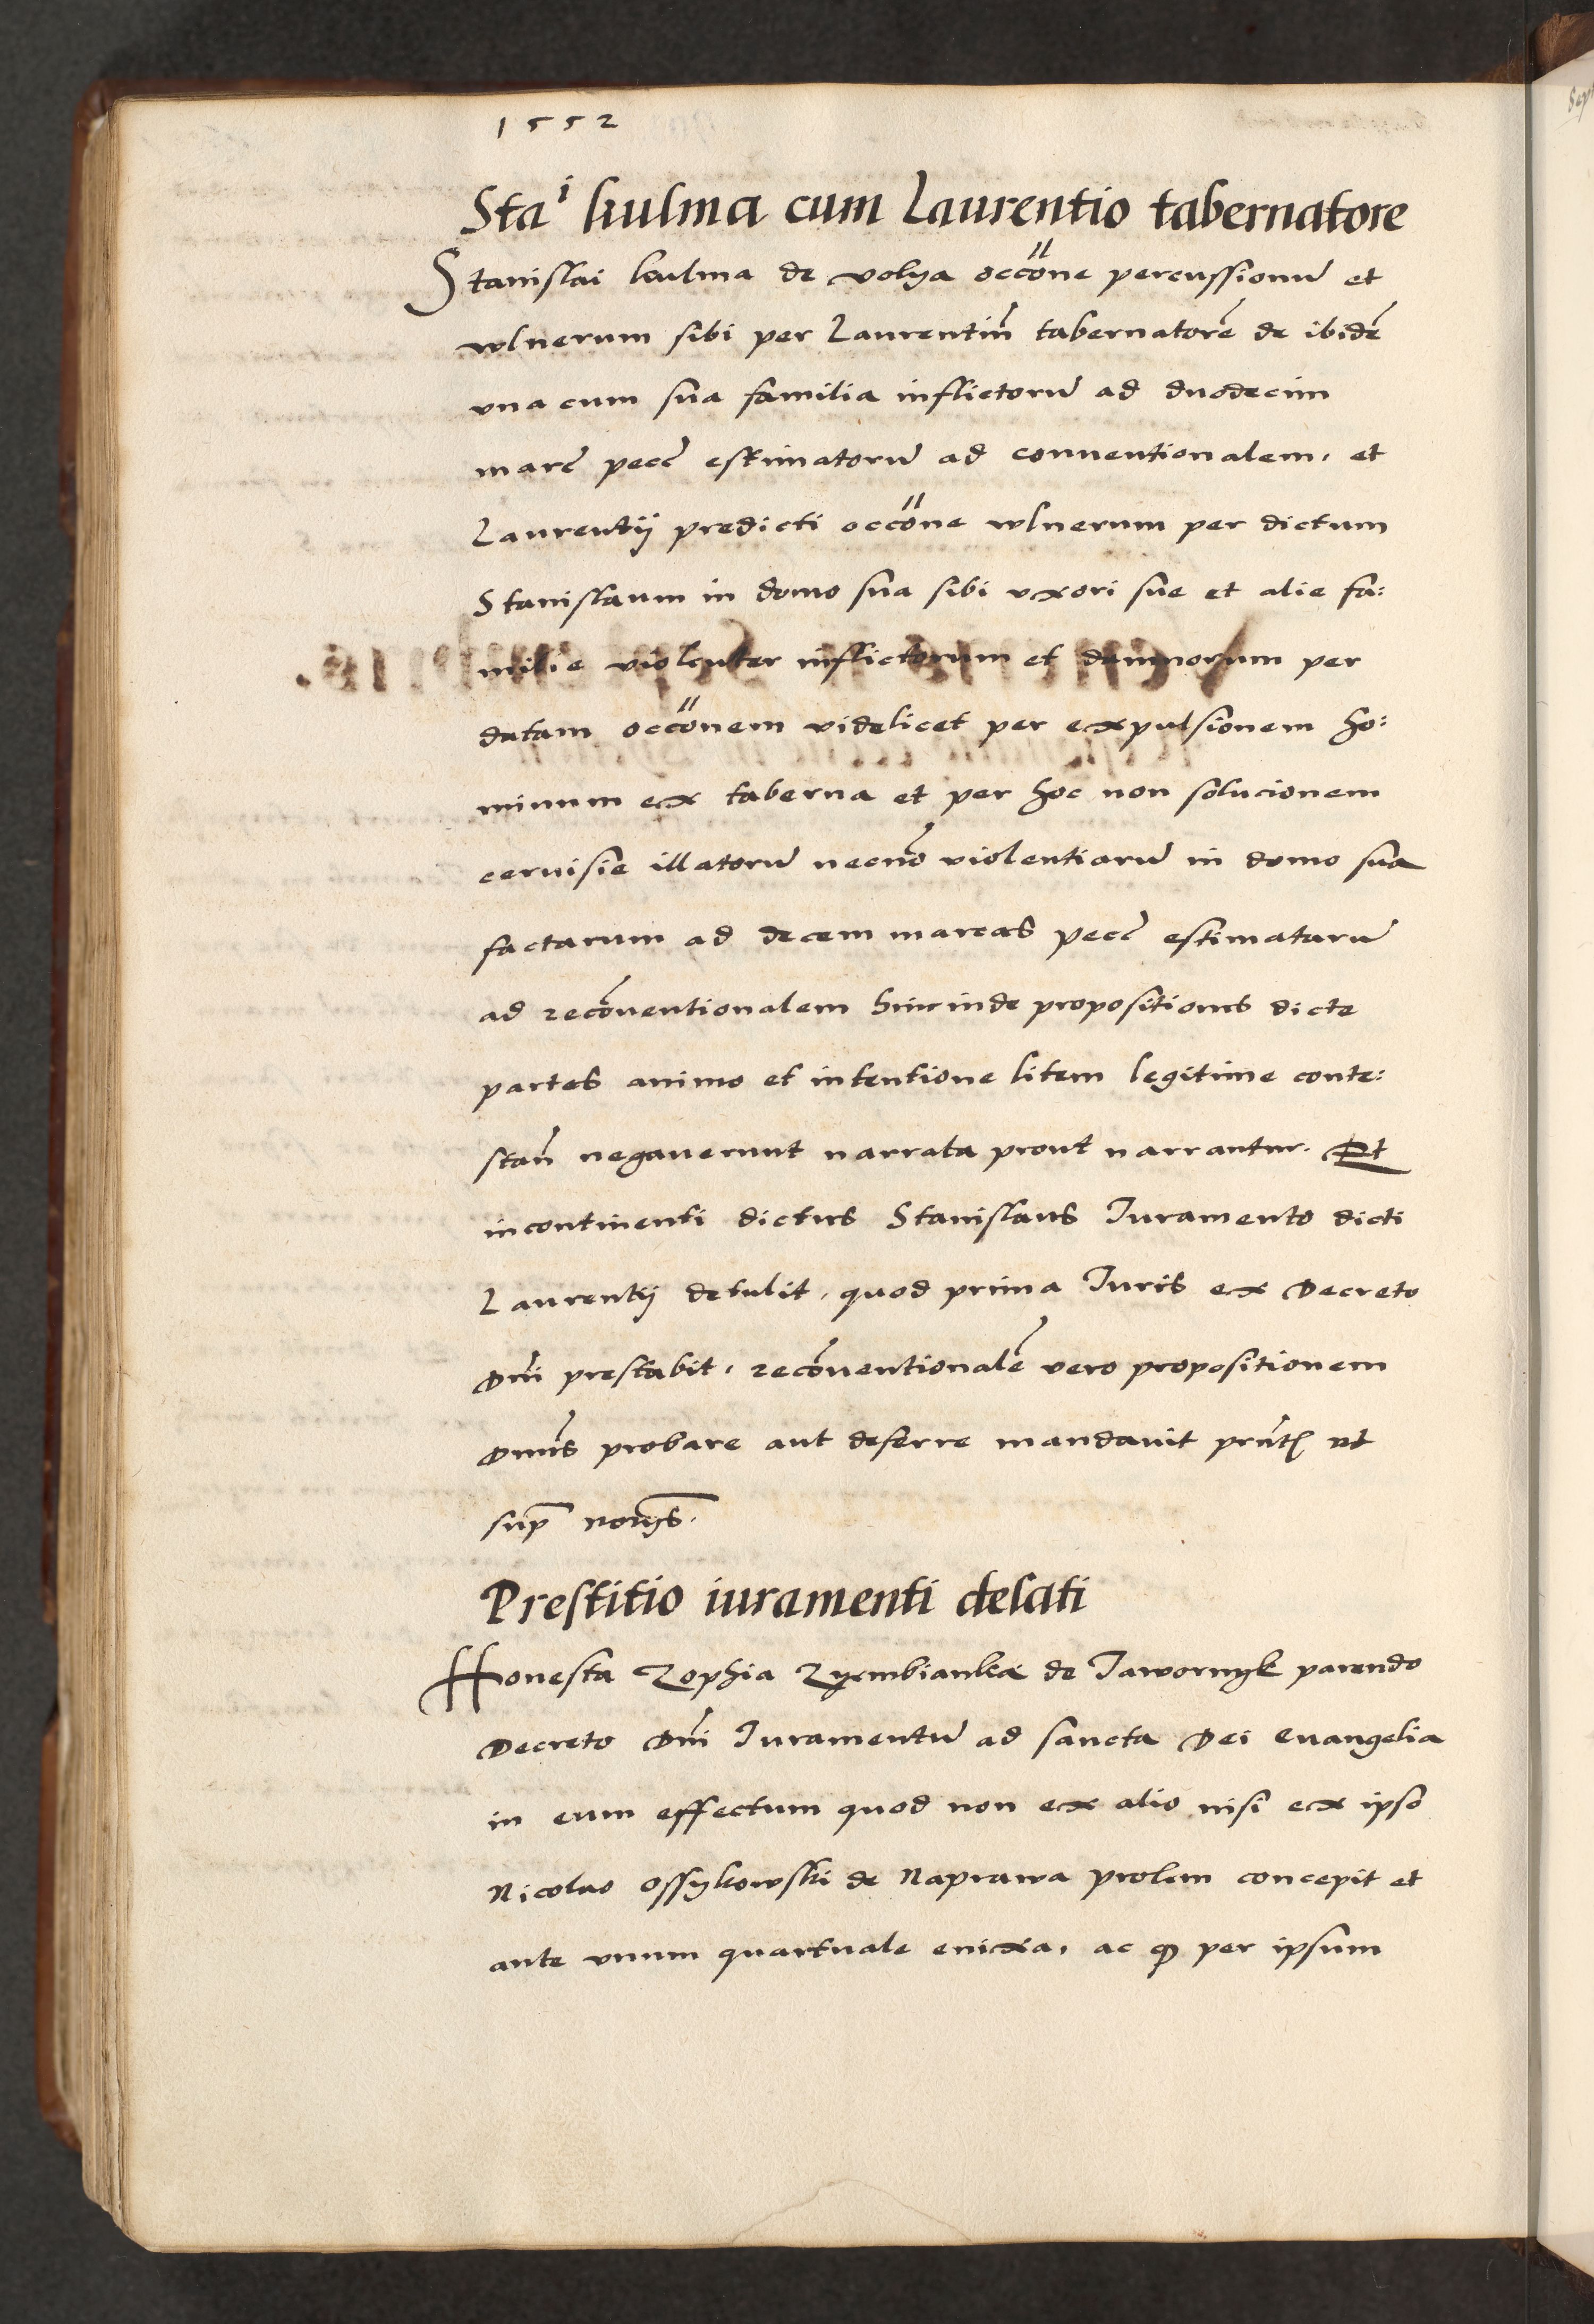 1552
Sta^i kulma cum Laurentio tabernatore
Stanislai kulma de volya occõne percussionũ et
wlnerum sibi per Laurentiũ tabernatorẽ de ibidẽ
vna cum sua familia inflictorũ ad duodecim
marc̃ pecc̃ estimatorũ ad conuentionalem, et
Laurentij predicti occõne wlnerum per dictum
Stanislaum in domo sua sibi vxori sue et alie fa:
milie violenter inflictorum et damnorum per
datam occõnem videlicet per expulsionem ho:
minum ex taberna et per hoc non solucionem
ceruisie illatorũ necnõ violentiarũ in domo sua
factarum ad decem marcas pecc̃ estimatarũ
ad recõuentionalem hincinde propositiones dicte
partes animo et intentione litem legitime conte:
stañ negauerunt narrata prout narrantur. Et
incontinenti dictus Stanislaus Iuramento dicti
Laurentij detulit, quod prima Iuris ex Decreto
Dñi prestabit, recõuentionalẽ vero propositionem
Dnũs probare aut deferre mandauit pñtꝭ vt
sup̃
Prestitio iuramenti delati
Honesta Zophia Zyembianka de Jawornyk parendo
Decreto Dñi Iuramentũ ad sancta Dei Euangelia
in eum effectum quod non ex alio nisi ex ipso
Nicolao Ossykowski de Naprawa prolem concepit et
ante vnum quartuale enixa, ac ꝙ per ipsum